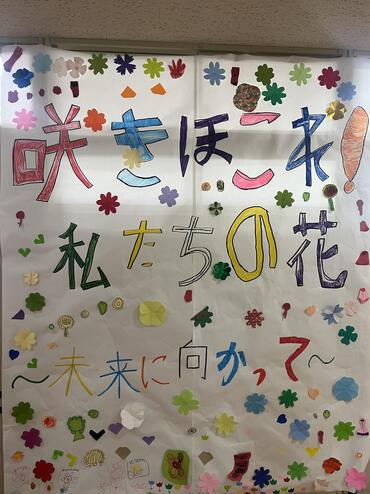 咲きほこれ!
私たちの花
～未来に向かって～